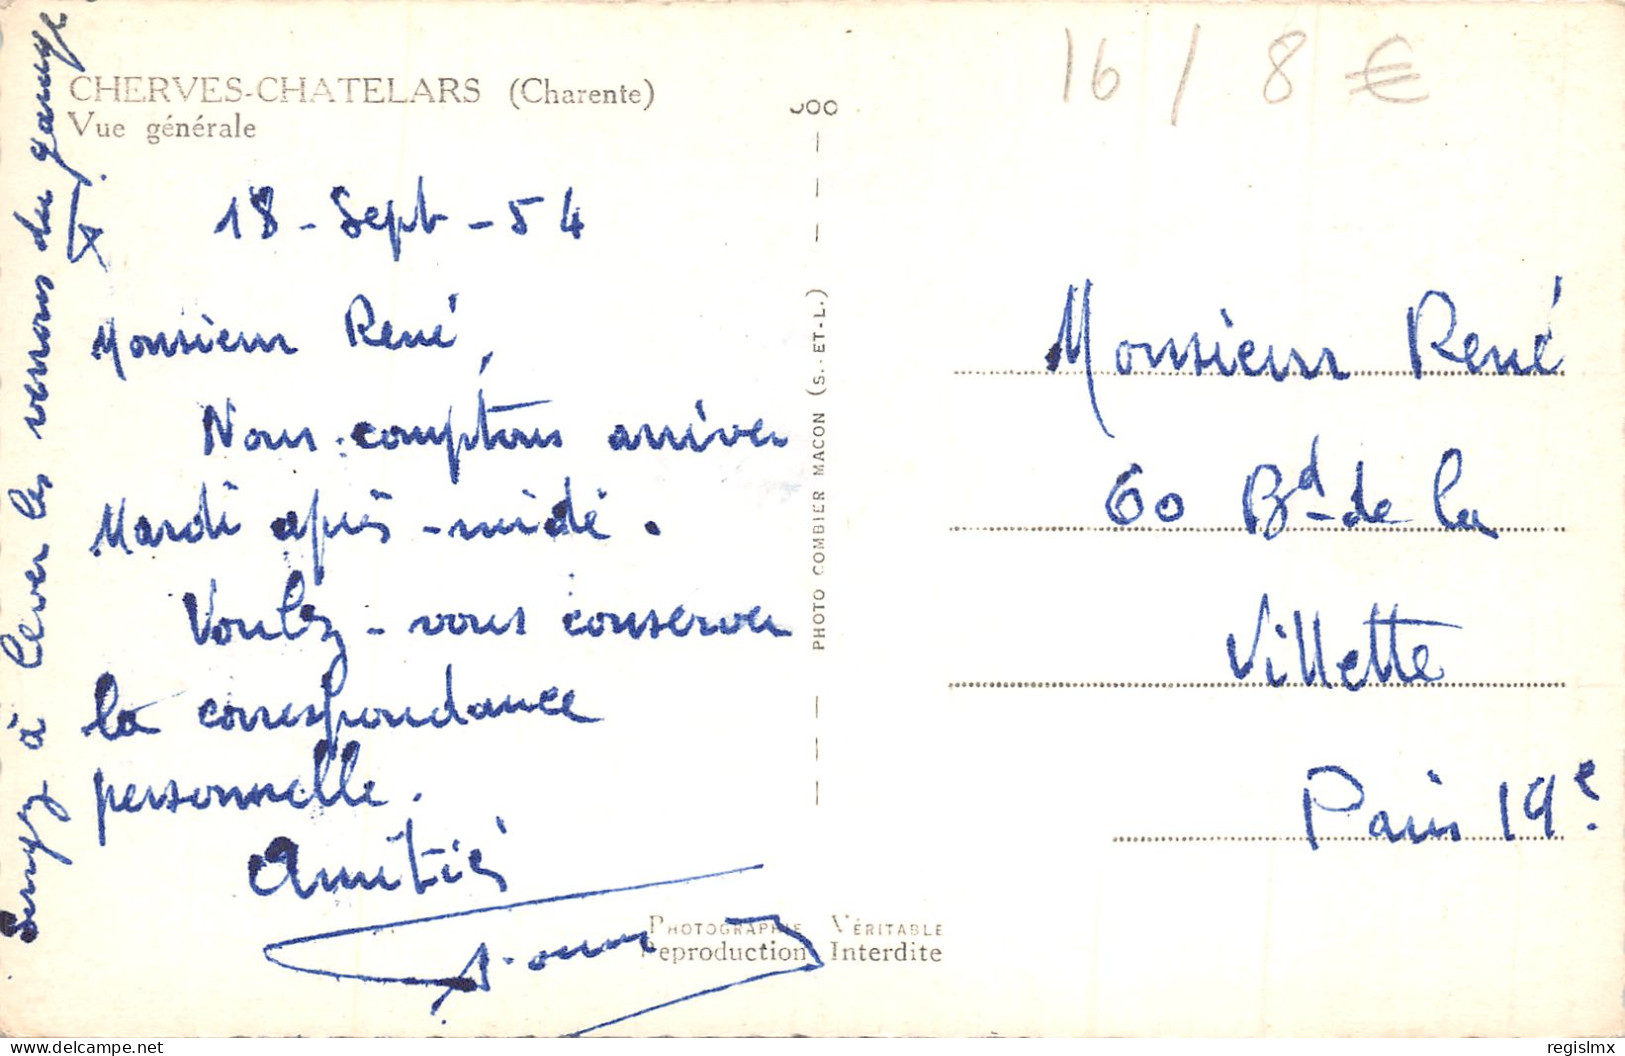 CHERVES-CHATELARS (Charente)
Vue générale
16 / 8 €
18 - Sept - 54
Monsieur René,
Nous comptons arriver
Mardi après-midi.
Voulez-vous conserver
la correspondance
personnelle.
Amitiés
Songez à lever les verrous du garage
Monsieur René
60 Bd de la
Villette
Paris 19e.
PHOTO COMBIER MACON (S.-ET-L.)
PHOTOGRAPHIE VÉRITABLE
Reproduction Interdite
Delcampe.net
regislmx